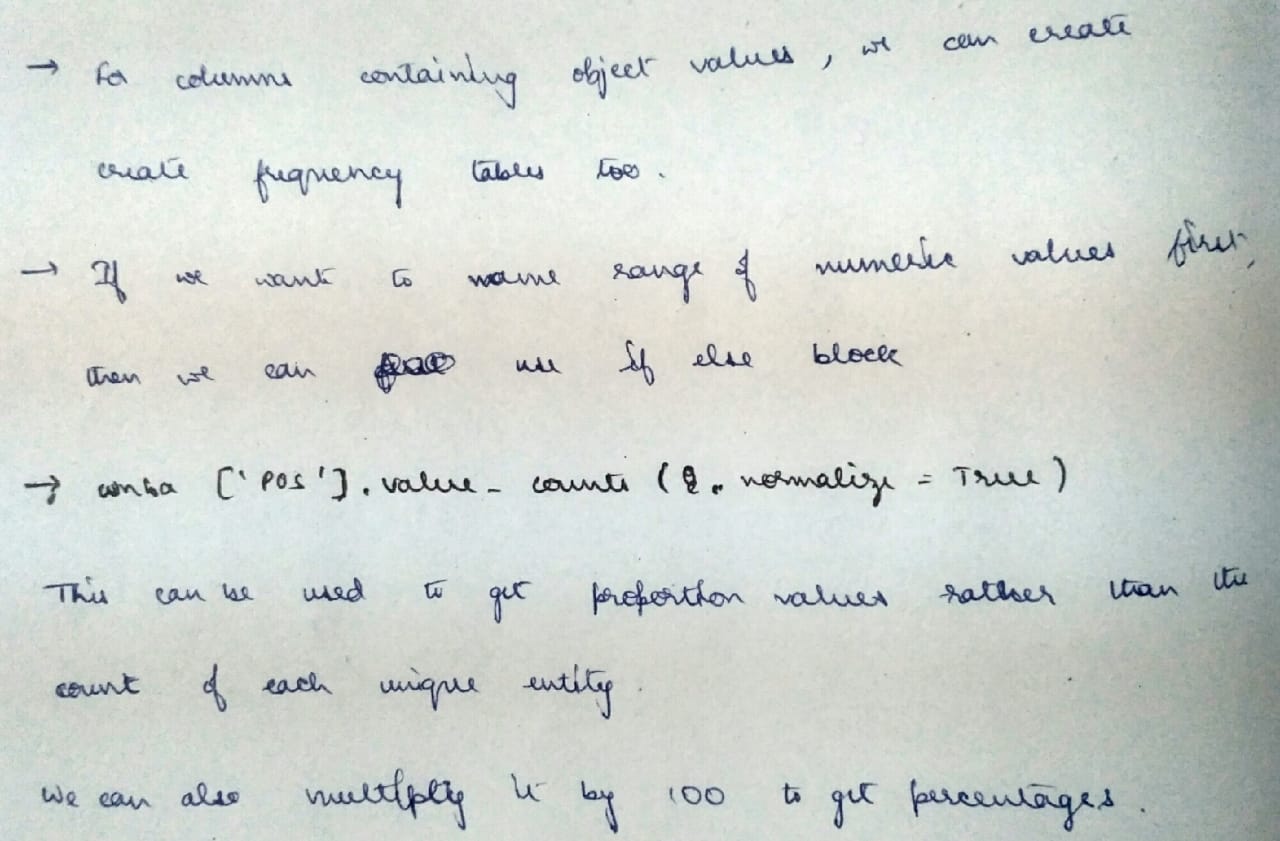 → For columns containing object values, we can create
create frequency tables too.
→ If we want to name range of numeric values first,
then we can use if else block
→ wnba ['POS'].value_counts (normalize = True)
This can be used to get proportion values rather than the
count of each unique entity.
We can also multiply it by 100 to get percentages.